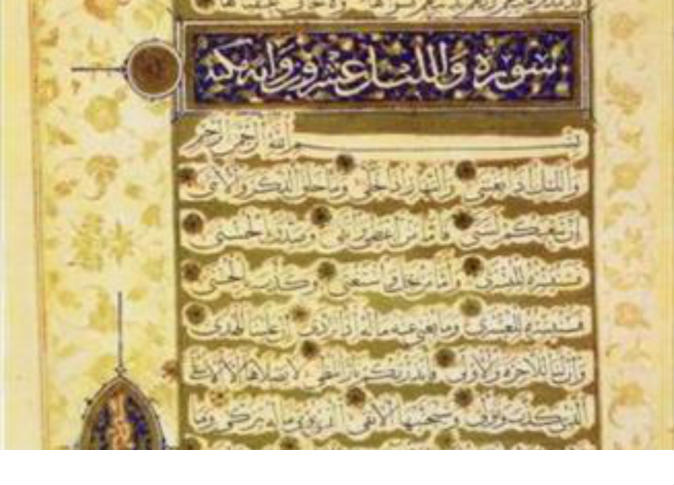 فدمدم عليهم ربهم بذنبهم فسواها ولا يخاف عقباها
سورة والليل عشرون وآية مكية
بسم الله الرحمن الرحيم
والليل إذا يغشى والنهار إذا تجلى وما خلق الذكر والأنثى
إن سعيكم لشتى فأما من أعطى واتقى وصدق بالحسنى
فسنيسره لليسرى وأما من بخل واستغنى وكذب بالحسنى
فسنيسره للعسرى وما يغني عنه ماله إذا تردى إن علينا للهدى
وإن لنا للآخرة والأولى فأنذرتكم نارا تلظى لا يصلاها إلا الأشقى
الذي كذب وتولى وسيجنبها الأتقى الذي يؤتي ماله يتزكى وما